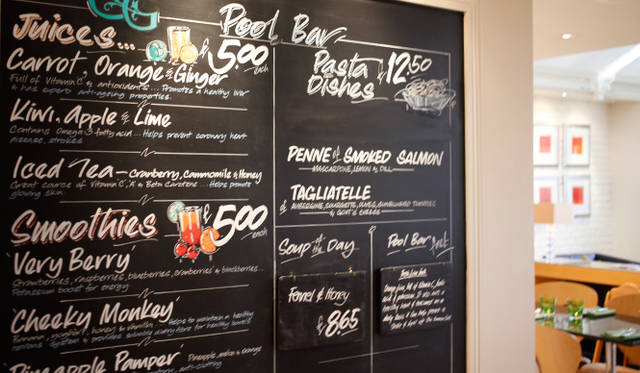 Juices...
£5.00
each
Carrot, Orange & Ginger
Full of Vitamin 'C' & antioxidents... Promotes a healthy liver
& has superb anti-ageing properties.
Kiwi, Apple & Lime
Contains Omega 3 fatty acid... Helps prevent coronary heart
disease, strokes
Iced Tea - Cranberry, Cammomile & Honey
Great source of Vitamin 'C', 'A' & Beta Carotene... Helps promote
glowing skin.
Smoothies £5.00
each
'Very Berry'
Strawberries, raspberries, blueberries, cranberries & blackberries...
Potassium boost for energy
'Cheeky Monkey'
Banana, honey & vitamin... Helps to maintain a healthy
'Pineapple Pamper' Pineapple, melon & orange
Pool Bar
Pasta Dishes £12.50
Penne of Smoked Salmon
Mascarpone, Lemon & Dill
Tagliatelle
of Aubergine, Courgette, Olives, Sunblushed Tomatoes
& Goat's Cheese
Soup of the Day
Fennel & Honey
£8.65
Pool Bar